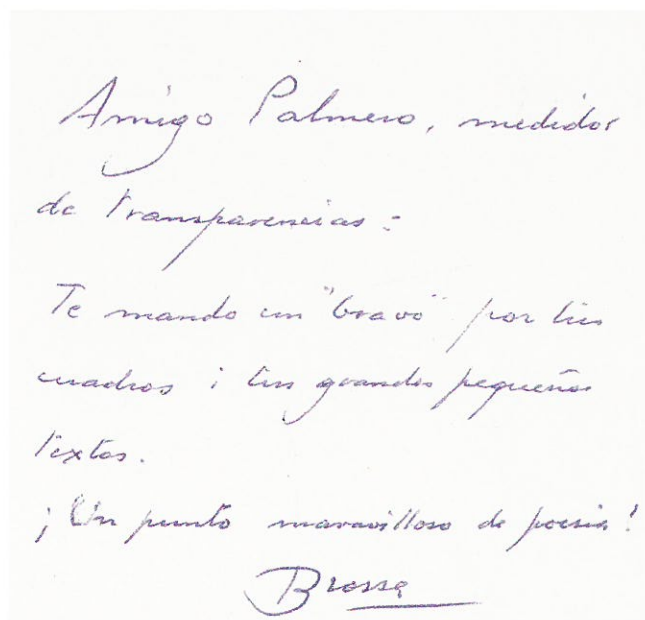 Amigo Palmero, medidor
de transparencias:
Te mando un "bravo" por tus
cuadros i tus grandes pequeños
textos.
¡Un punto maravilloso de poesia!
Brossa